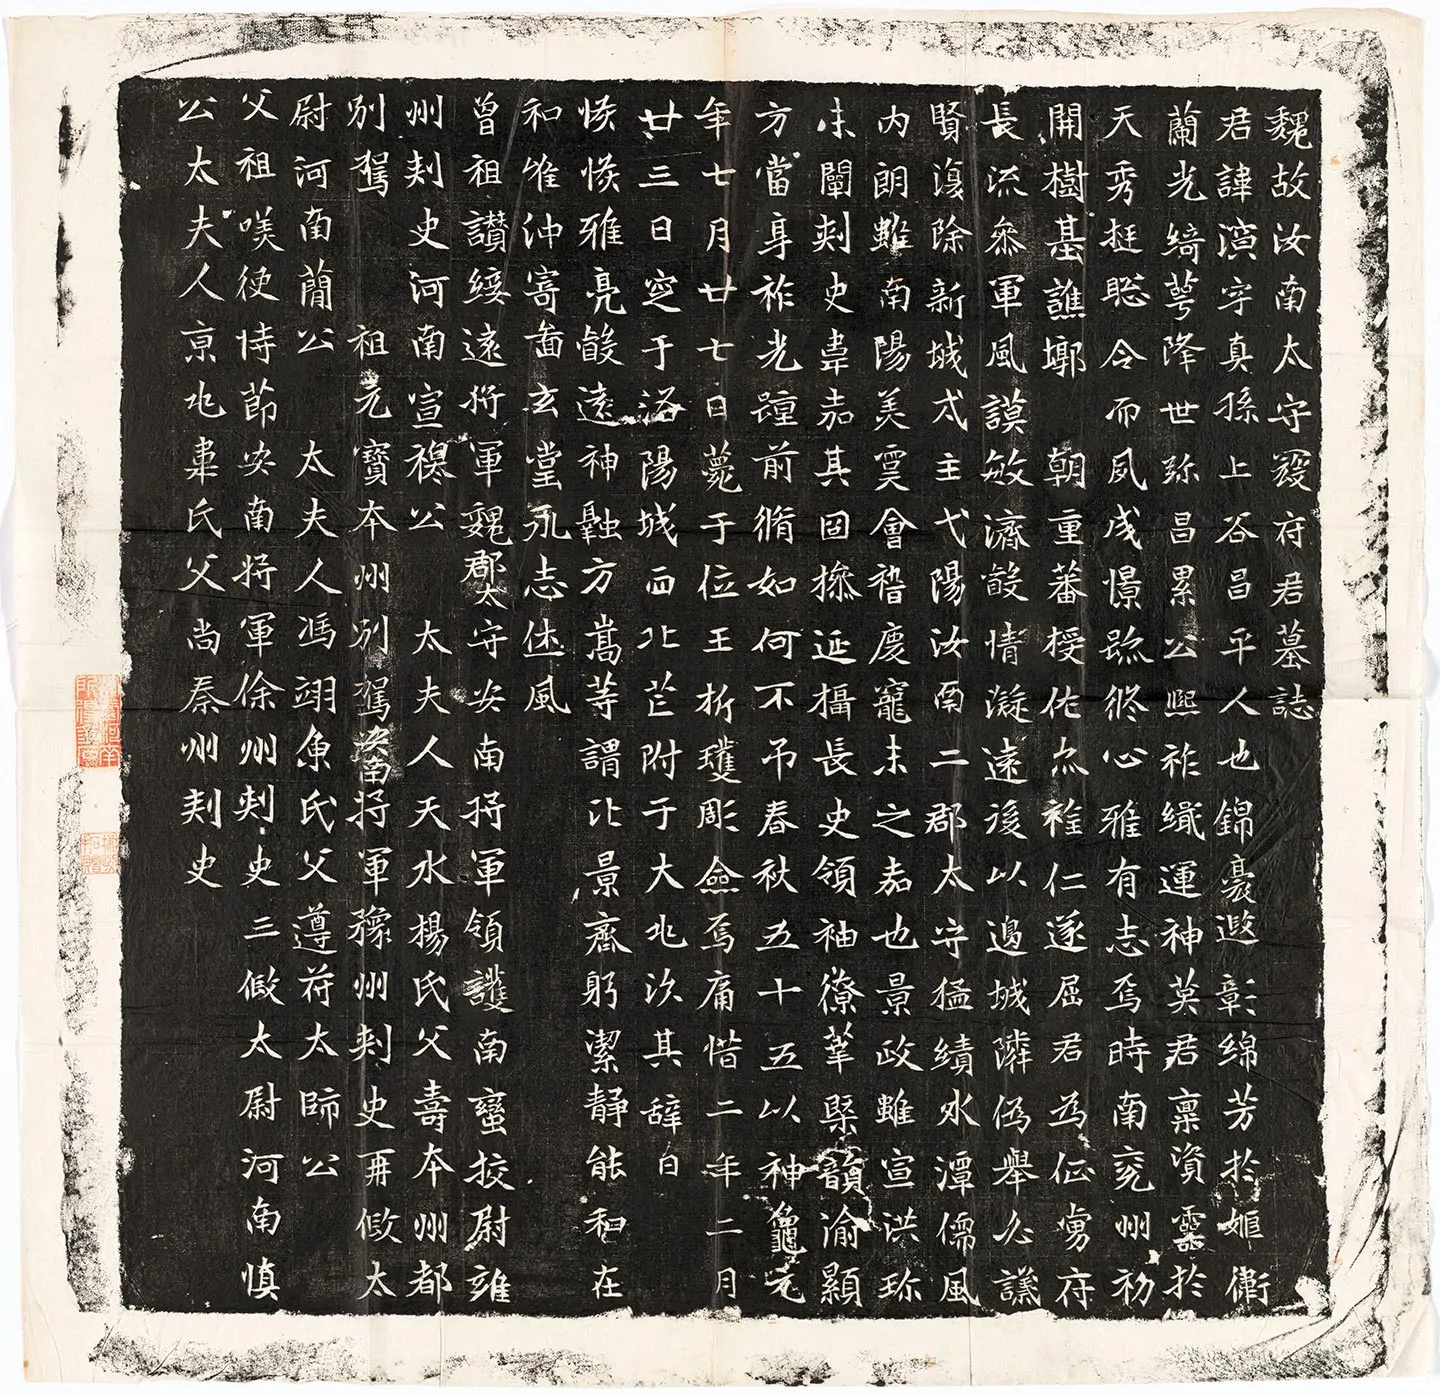 魏故汝南太守寇府君墓誌
君諱演字真孫上谷昌平人也錦裵遐彰綿芳扵姬衛
蘭光綺萼降世弥昌累公熙祚緎運神英君稟資靈扵
天秀挺聡令而夙成憬䟽終心雅有志焉時南兖州初
開樹基譙墎 朝重蕃授佐亦襍仁遂屈君為征虜府
長流叅軍風謨敏濟㲉情凝遠後以邊城隣偽舉公議
賢復除新城弋主弋陽汝南二郡太守猛績氷潭儒風
内朗雖南陽美寞會稽慶寵未之嘉也景政雖宣洪珎
未闡刾史韋嘉其固操延攝長史領袖僚莘槩韻渝顯
方當享祚光踵前脩如何不弔春秋五十五以神龜元
年七月廿七日薨于位王折瓊彫僉焉痛惜二年二月
廿三日窆于洛陽城西北芒附于大兆次其辞曰
恢恢雅亮㲉遠神融方嵩等謂比景齊躬潔静能和在
和惟沖寄啚玄堂永志休風
曾祖讃綏遠將軍魏郡太守安南將軍領護南蠻挍尉雍
州刾史河南宣穆公 太夫人天水楊氏父壽本州都
別駕 祖元寶本州別駕安南將軍豫州刾史再假太
尉河南簡公 太夫人馮翊魚氏父遵苻太師公
父祖嘆使恃節安南將軍徐州刾史三假太尉河南慎
公太夫人京兆韋氏父尚秦州刾史